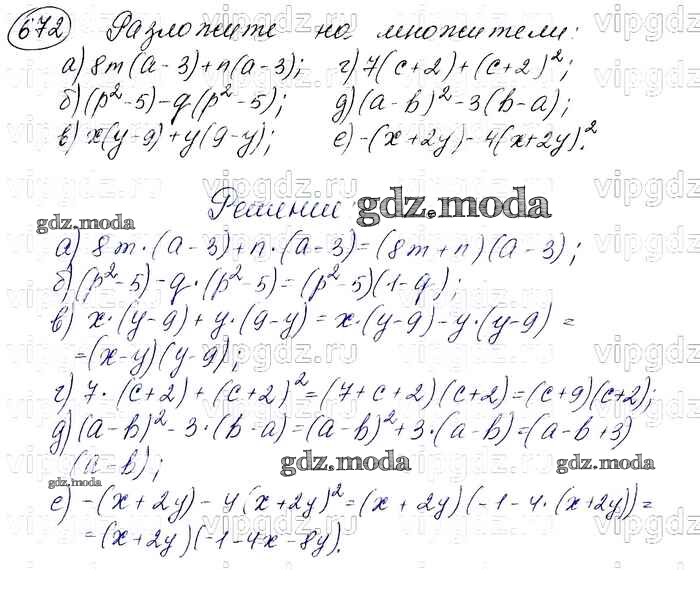 672 Разложите на множители:
а) 8m(a-3)+n(a-3); г) 7(c+2)+(c+2)²;
б) (p²-5)-q(p²-5); д) (a-b)²-3(b-a);
в) x(y-9)+y(9-y); е) -(x+2y)-4(x+2y)².
Решении
gdz.moda
gdz.moda
а) 8m·(a-3)+n·(a-3)=(8m+n)(a-3);
б) (p²-5)-q·(p²-5)=(p²-5)(1-q);
в) x·(y-9)+y·(9-y)=x·(y-9)-y·(y-9)=
=(x-y)(y-9);
г) 7·(c+2)+(c+2)²=(7+c+2)(c+2)=(c+9)(c+2);
д) (a-b)²-3·(b-a)=(a-b)²+3·(a-b)=(a-b+3)
(a-b);
gdz.moda
gdz.moda
gdz.moda
е) -(x+2y)-4(x+2y)²=(x+2y)(-1-4·(x+2y))=
=(x+2y)(-1-4x-8y).